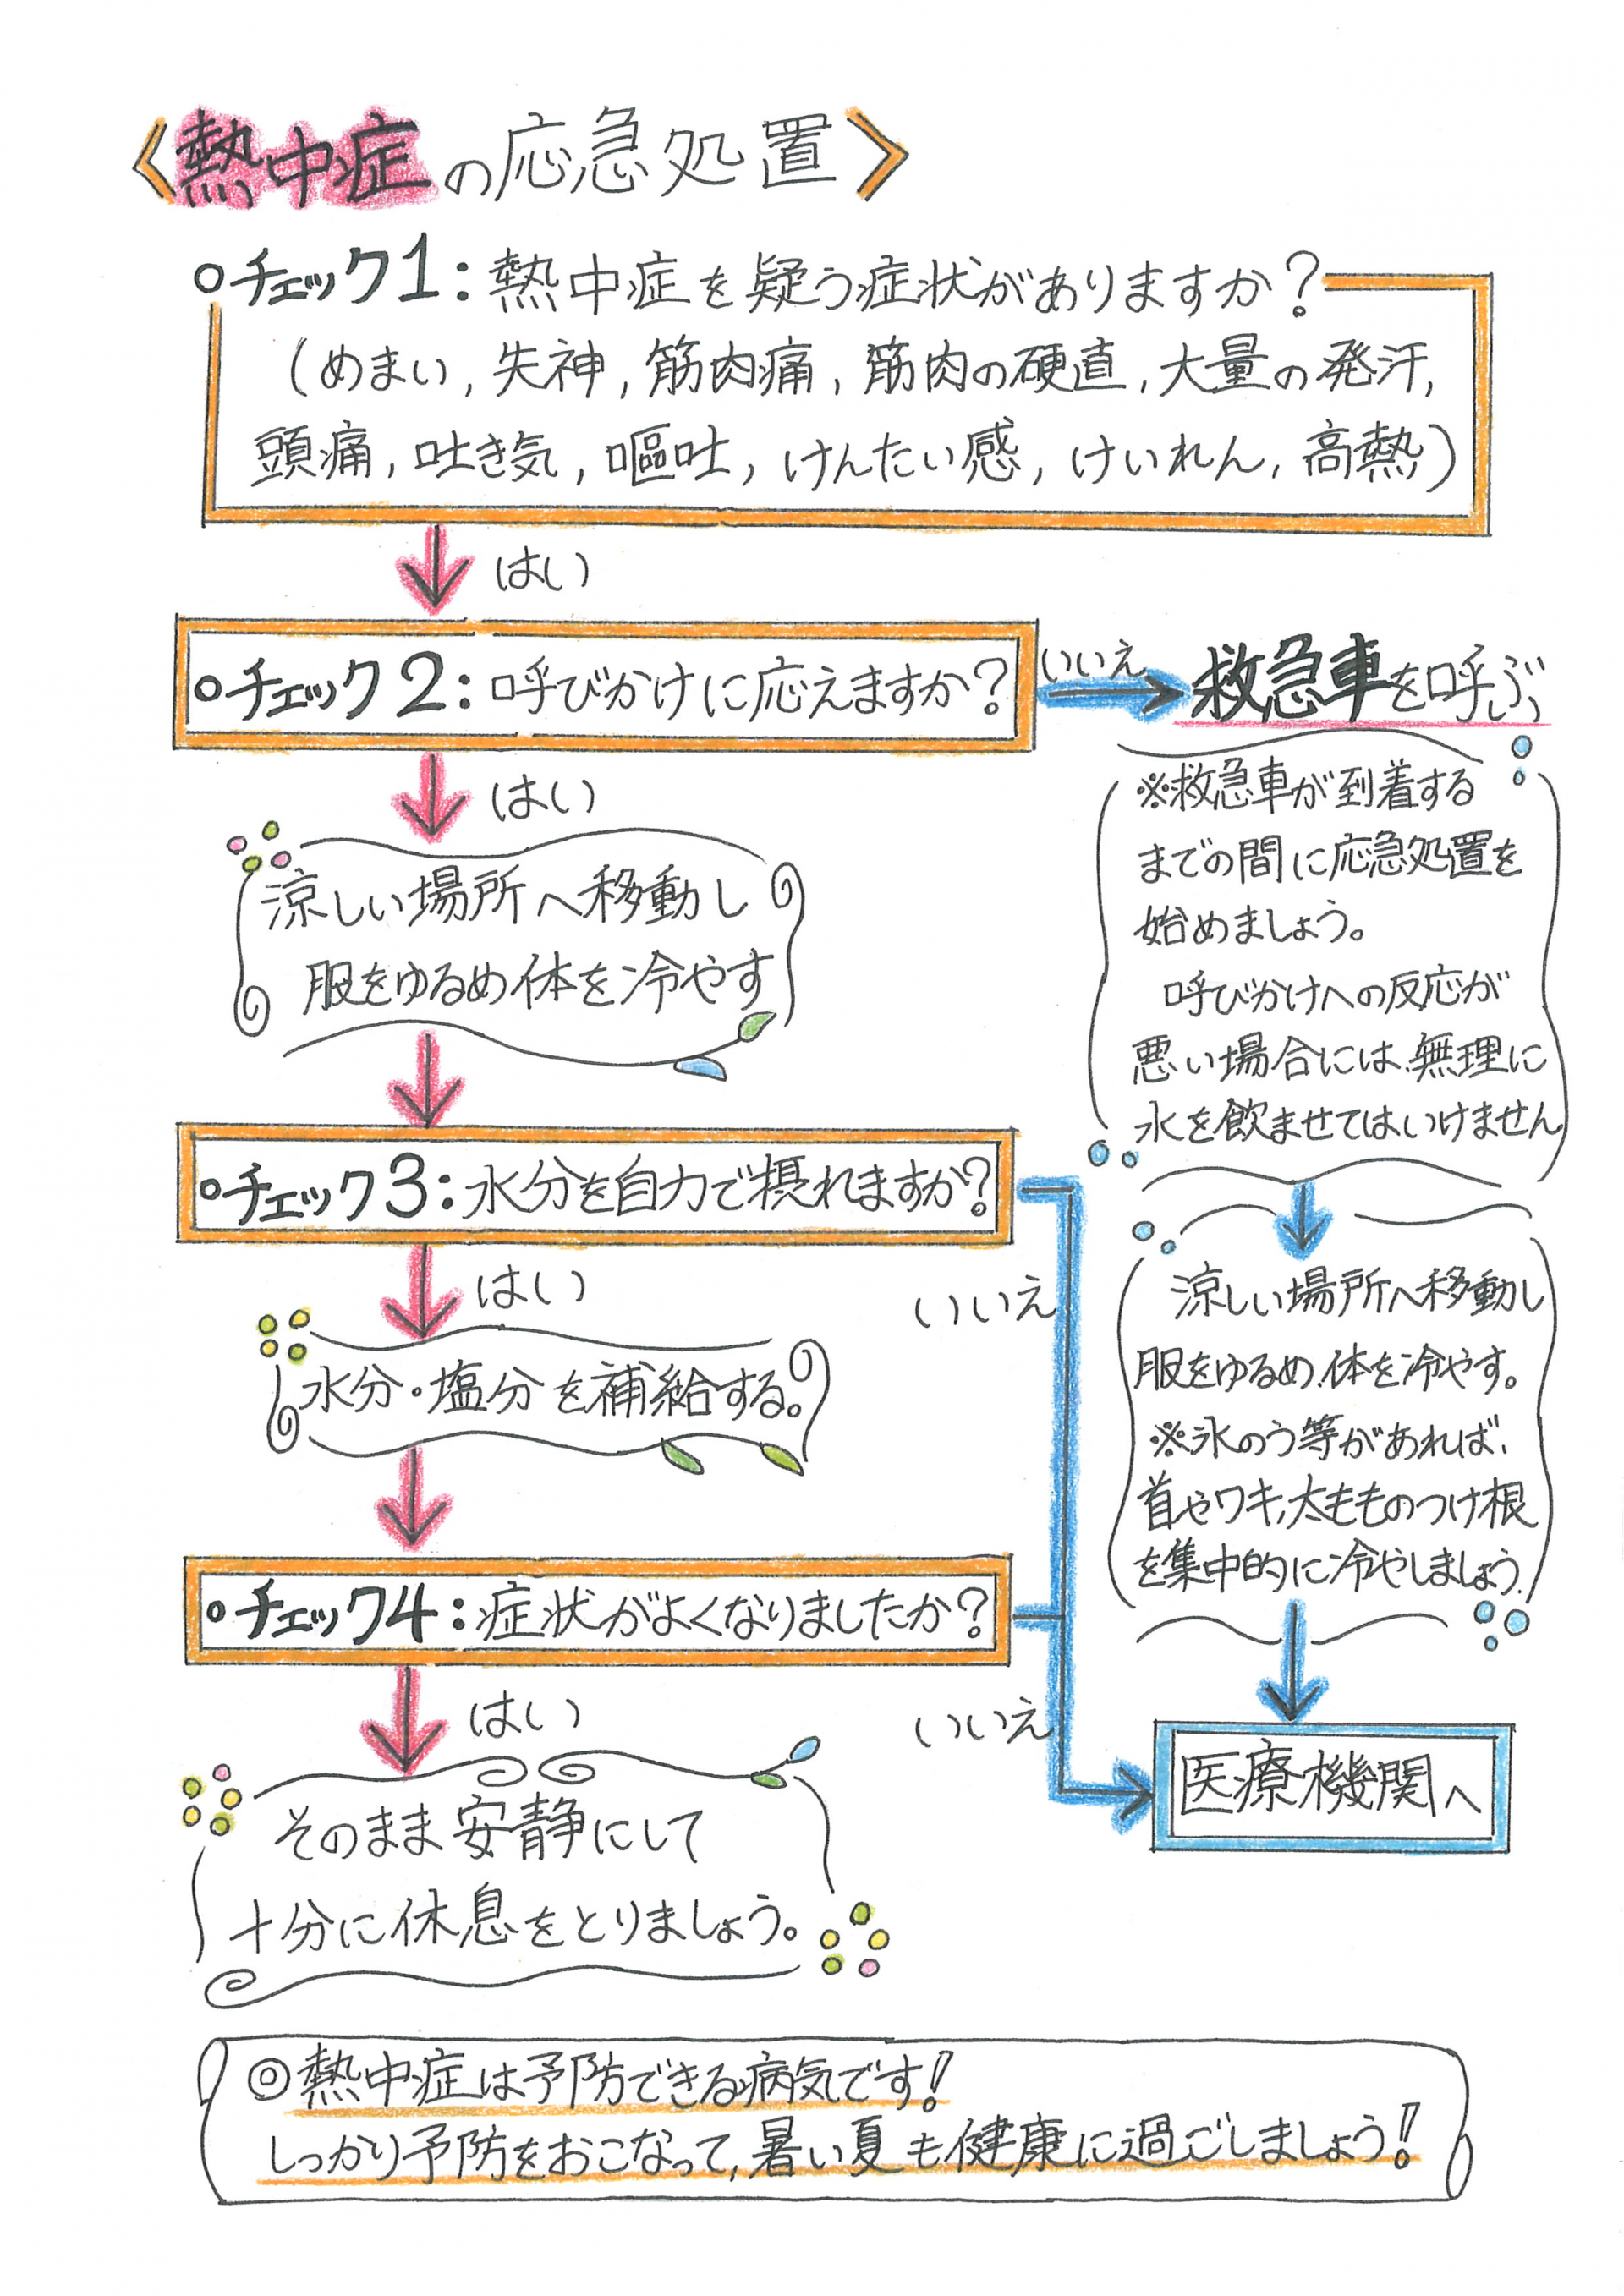 〈熱中症の応急処置〉
○チェック1:熱中症を疑う症状がありますか?
(めまい,失神,筋肉痛,筋肉の硬直,大量の発汗,
頭痛,吐き気,嘔吐,けんたい感,けいれん,高熱)
はい
○チェック2:呼びかけに応えますか?
いいえ
救急車を呼ぶ
※救急車が到着する
までの間に応急処置を
始めましょう。
呼びかけへの反応が
悪い場合には、無理に
水を飲ませてはいけません
はい
涼しい場所へ移動し
服をゆるめ体を冷やす
○チェック3:水分を自力で摂れますか?
はい
いいえ
涼しい場所へ移動し
服をゆるめ、体を冷やす。
※氷のう等があれば、
首やワキ,太もものつけ根
を集中的に冷やしましょう.
水分・塩分を補給する。
○チェック4:症状がよくなりましたか?
はい
いいえ
医療機関へ
そのまま安静にして
十分に休息をとりましょう。
◎熱中症は予防できる病気です!
しっかり予防をおこなって,暑い夏も健康に過ごしましょう!